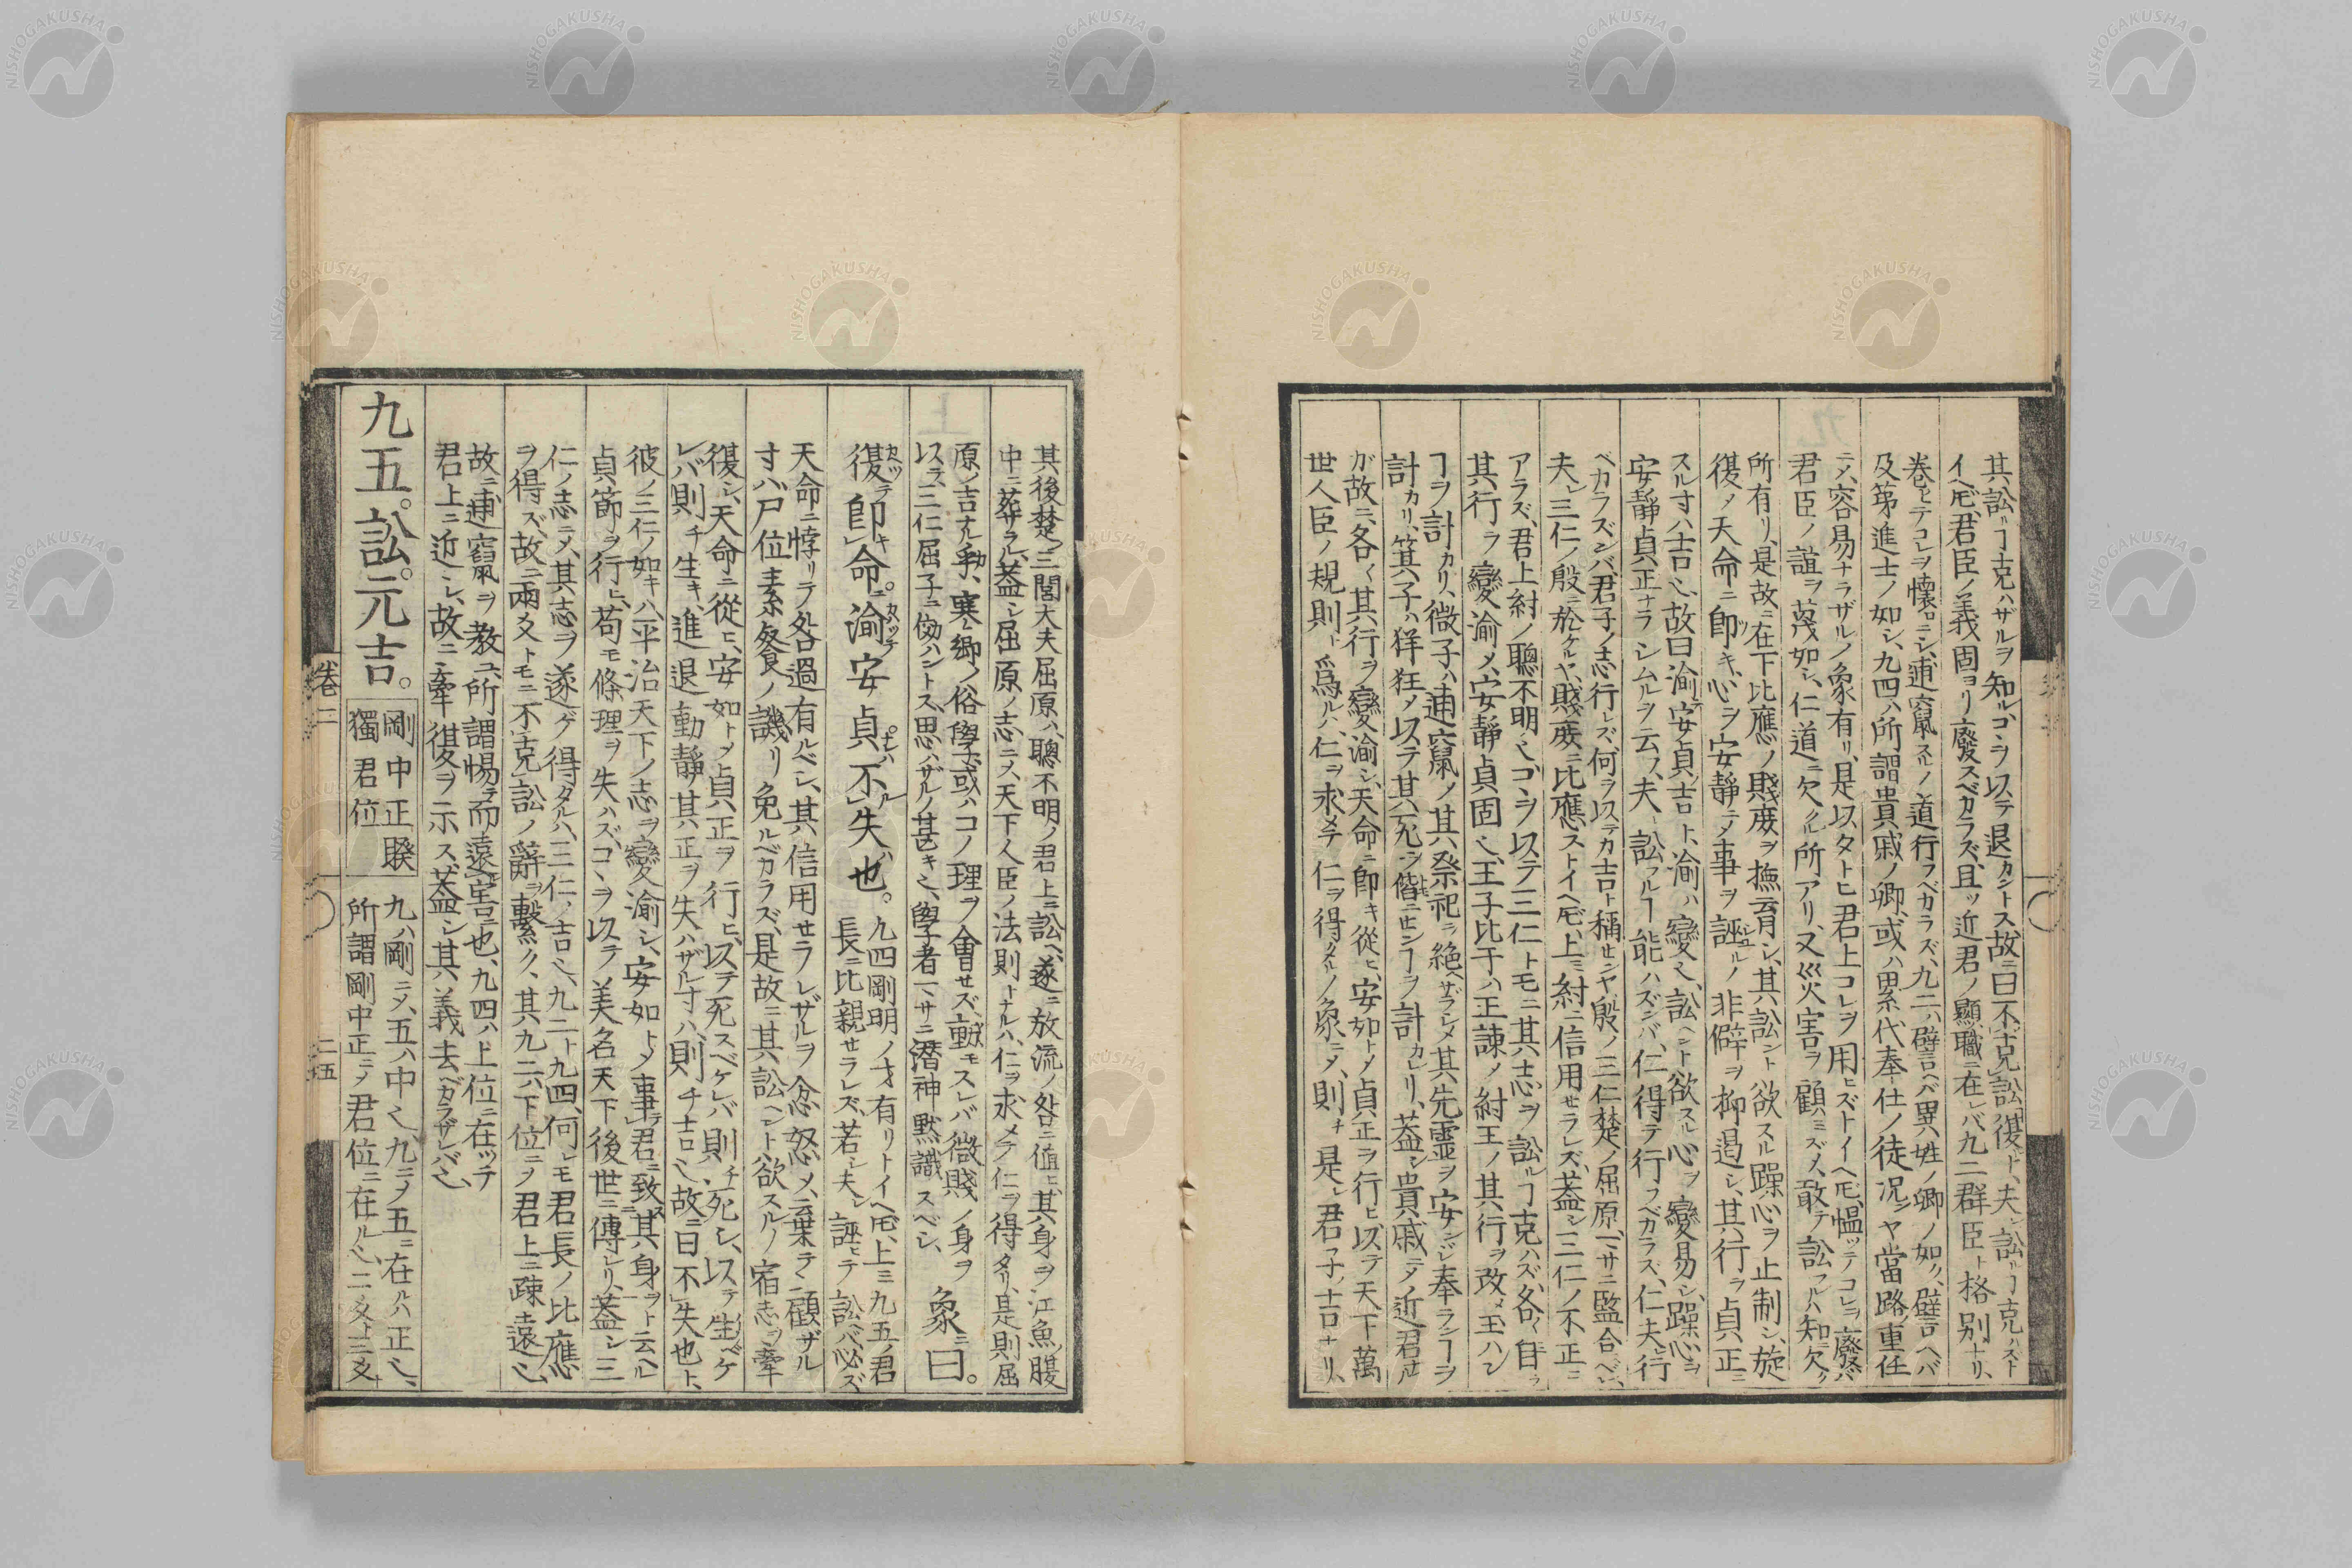 其訟ルヿ克ハザルヲ知ル、コヽヲ以テ退カントス、故ニ曰不克訟復ト、夫レ訟ルヿ克ハスト
イヘ𪜈、君臣ノ義固ヨリ廢スベカラズ、且ッ近君ノ顯職ニ在レバ九二群臣ト格別ナリ、
卷テコレヲ懷ニシ、逋竄スルノ道行フベカラズ、九二ハ譬言ヘバ異姓ノ卿ノ如ク、譬言ヘバ
及第進士ノ如シ、九四ハ所謂貴戚ノ卿、或ハ累代奉仕ノ徒、況ンヤ當路重任
ニメ、容易ナラザルノ象有リ、是以タトヒ君上コレヲ用ヒズトイヘ𪜈、慍ッテコレヲ廢バ
君臣ノ誼ヲ蔑如シ、仁道ニ欠クル所アリ、又災害ヲ顧ミズメ、敢テ訟フルハ知ニ欠ク
所有リ、是故ニ在下比應ノ賤庻ヲ撫育シ、其訟ント欲スル躁心ヲ止制シ、旋
復メ天命ニ卽キ、心ヲ安靜テメ事ヲ誣ルノ非僻ヲ抑遏シ、其行ヲ貞正ニ
スル寸ハ吉也、故曰渝安貞吉ト、渝ハ變也、訟ヘント欲スル心ヲ變易シ、躁心ヲ
安靜貞正ナラシムルヲ云フ、夫レ訟フルヿ能ハズンバ、仁得テ行フベカラス、仁夫レ行
ベカラズンバ、君子ノ志行レズ、何ヲ以テカ吉ト稱センヤ、殷ノ三仁楚ノ屈原マサニ監合ベシ、
夫レ三仁ノ殷ニ於ケルヤ、賤庻ニ比應ストイヘ𪜈、上ミ紂ニ信用セラレズ、蓋シ三仁ノ不正ニ
アラズ、君上紂ノ聰不明也、コヽヲ以テ三仁トモニ其志ヲ訟ルヿ克ハズ、各〱自ラ
其行ヲ變渝メ、安靜貞固也、王子比干ハ正諫メ紂王ノ其行ヲ改メ玉ハン
ヿヲ計カリ、微子ハ逋竄メ其祭祀ヲ絶ヘザラシメ其先靈ヲ安ンジ奉ラシヿヲ
計カリ、箕子ハ佯狂メ以テ其死ヲ偕ニセンヿヲ計カレリ、蓋シ貴戚テメ近君ナル
ガ故ニ、各〱其行ヲ變渝シ、天命ニ卽キ從ヒ、安如トメ貞正ヲ行ヒ以テ天下萬
世人臣ノ規則ト爲ルハ、仁ヲ求メテ仁ヲ得タルノ象ニメ、則チ是レ君子ノ吉ナリ、
其後楚ノ三閭大夫屈原ハ、聰不明ノ君上ニ訟ヘ、遂ニ放流ノ咎ニ値ヒ、其身ヲ江魚腹
中ニ葬ラル、蓋シ屈原ノ志ニメ、天下人臣ノ法則トナルハ、仁ヲ求メテ仁ヲ得タリ、是則屈
原ノ吉ナル乎、寒鄉ノ俗學、或ハコノ理ヲ會セズ、動モスレバ微賤ノ身ヲ
以テ、三仁屈子ニ傚ハントス、思ハザルノ甚キ也、學者マサニ潛神黙識スベシ、 象ニ曰。
復テ卽キ命ニ。渝安貞不失也。 九四剛明ノ才有リトイヘ𪜈、上ミ九五ノ君
長ニ比親セラレズ、若シ夫レ誣ヒテ訟ヘバ必ズ
天命ニ悖リテ咎過有ルベシ、其信用セラレザルヲ忿怒メ、棄テヽ顧ザル
寸ハ尸位素餐ノ譏リ免ルベカラズ、是故ニ其訟ヘント欲スルノ宿志ヲ牽
復シ、天命ニ從ヒ、安如トメ貞正ヲ行ヒ、以テ死スベケレバ則チ死シ、以テ生ベケ
レバ則チ生キ、進退動靜其正ヲ失ハザル寸ハ、則チ吉也、故ニ曰不失也ト、
彼ノ三仁ノ如キハ平治天下ノ志ヲ變渝シ、安如トメ事テ君ニ致ス其身ヲト云ヘル
貞節ヲ行ヒ、苟モ條理ヲ失ハズ、コヽヲ以テメ美名天下後世ニ傳レリ、蓋シ三
仁ノ志ニメ、其志ヲ遂ゲ得タルハ、三仁ノ吉也、九二ト九四、何レモ君長ノ比應
ヲ得ズ、故ニ兩爻トモニ不克訟ノ辭ヲ繫ク、其九二ハ下位ニメ君上ニ疎遠也、
故ニ逋竄ヲ敎ユ、所謂惕テ而遠害ニ也、九四ハ上位ニ在ッテ
君上ニ近シ、故ニ牽復ヲ示ス、蓋シ其義去ベカラザレバ也、
九五。訟。元吉。 剛中正睽
獨君位 九ハ剛ニメ、五ハ中也、九ニメ五ニ在ルハ正也、
所謂剛中正ニメ君位ニ在ル也、二爻ト三爻ト
卷三
二五